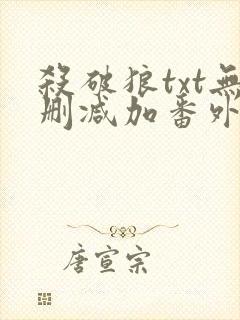 殺破狼txt無
刪減加番外
唐宣宗